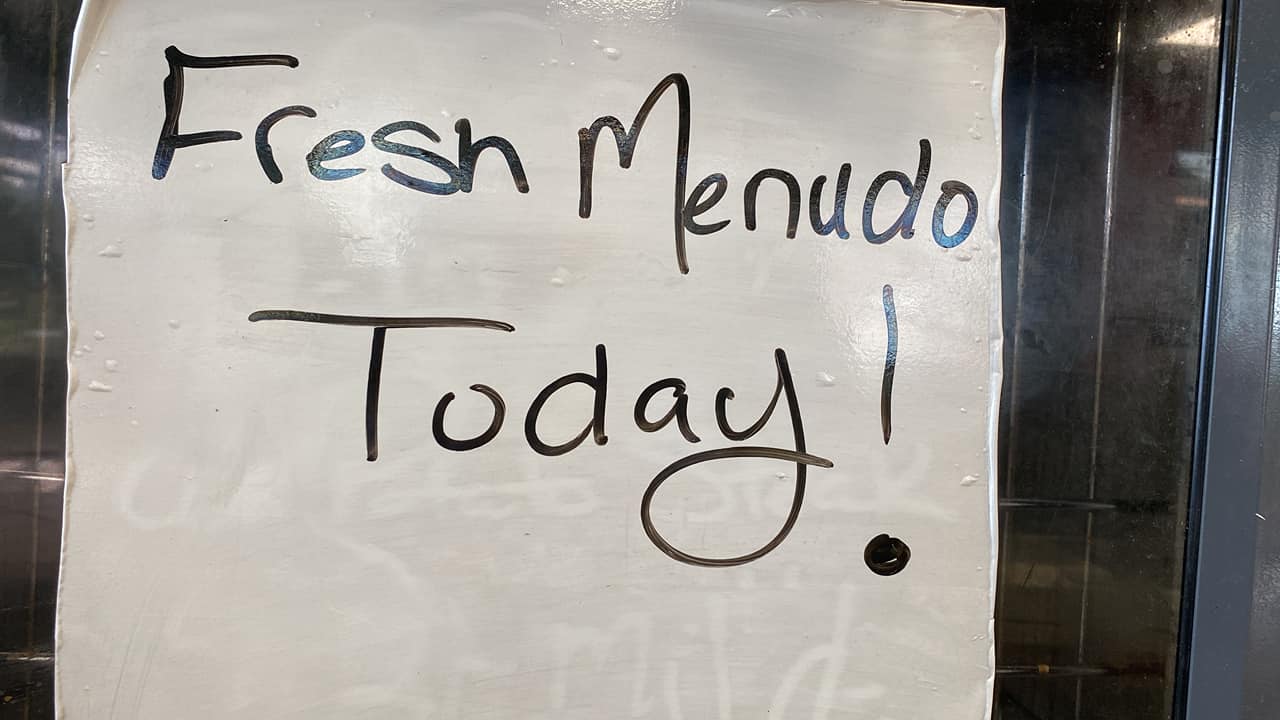 Fresh Menudo
Today!
Mild